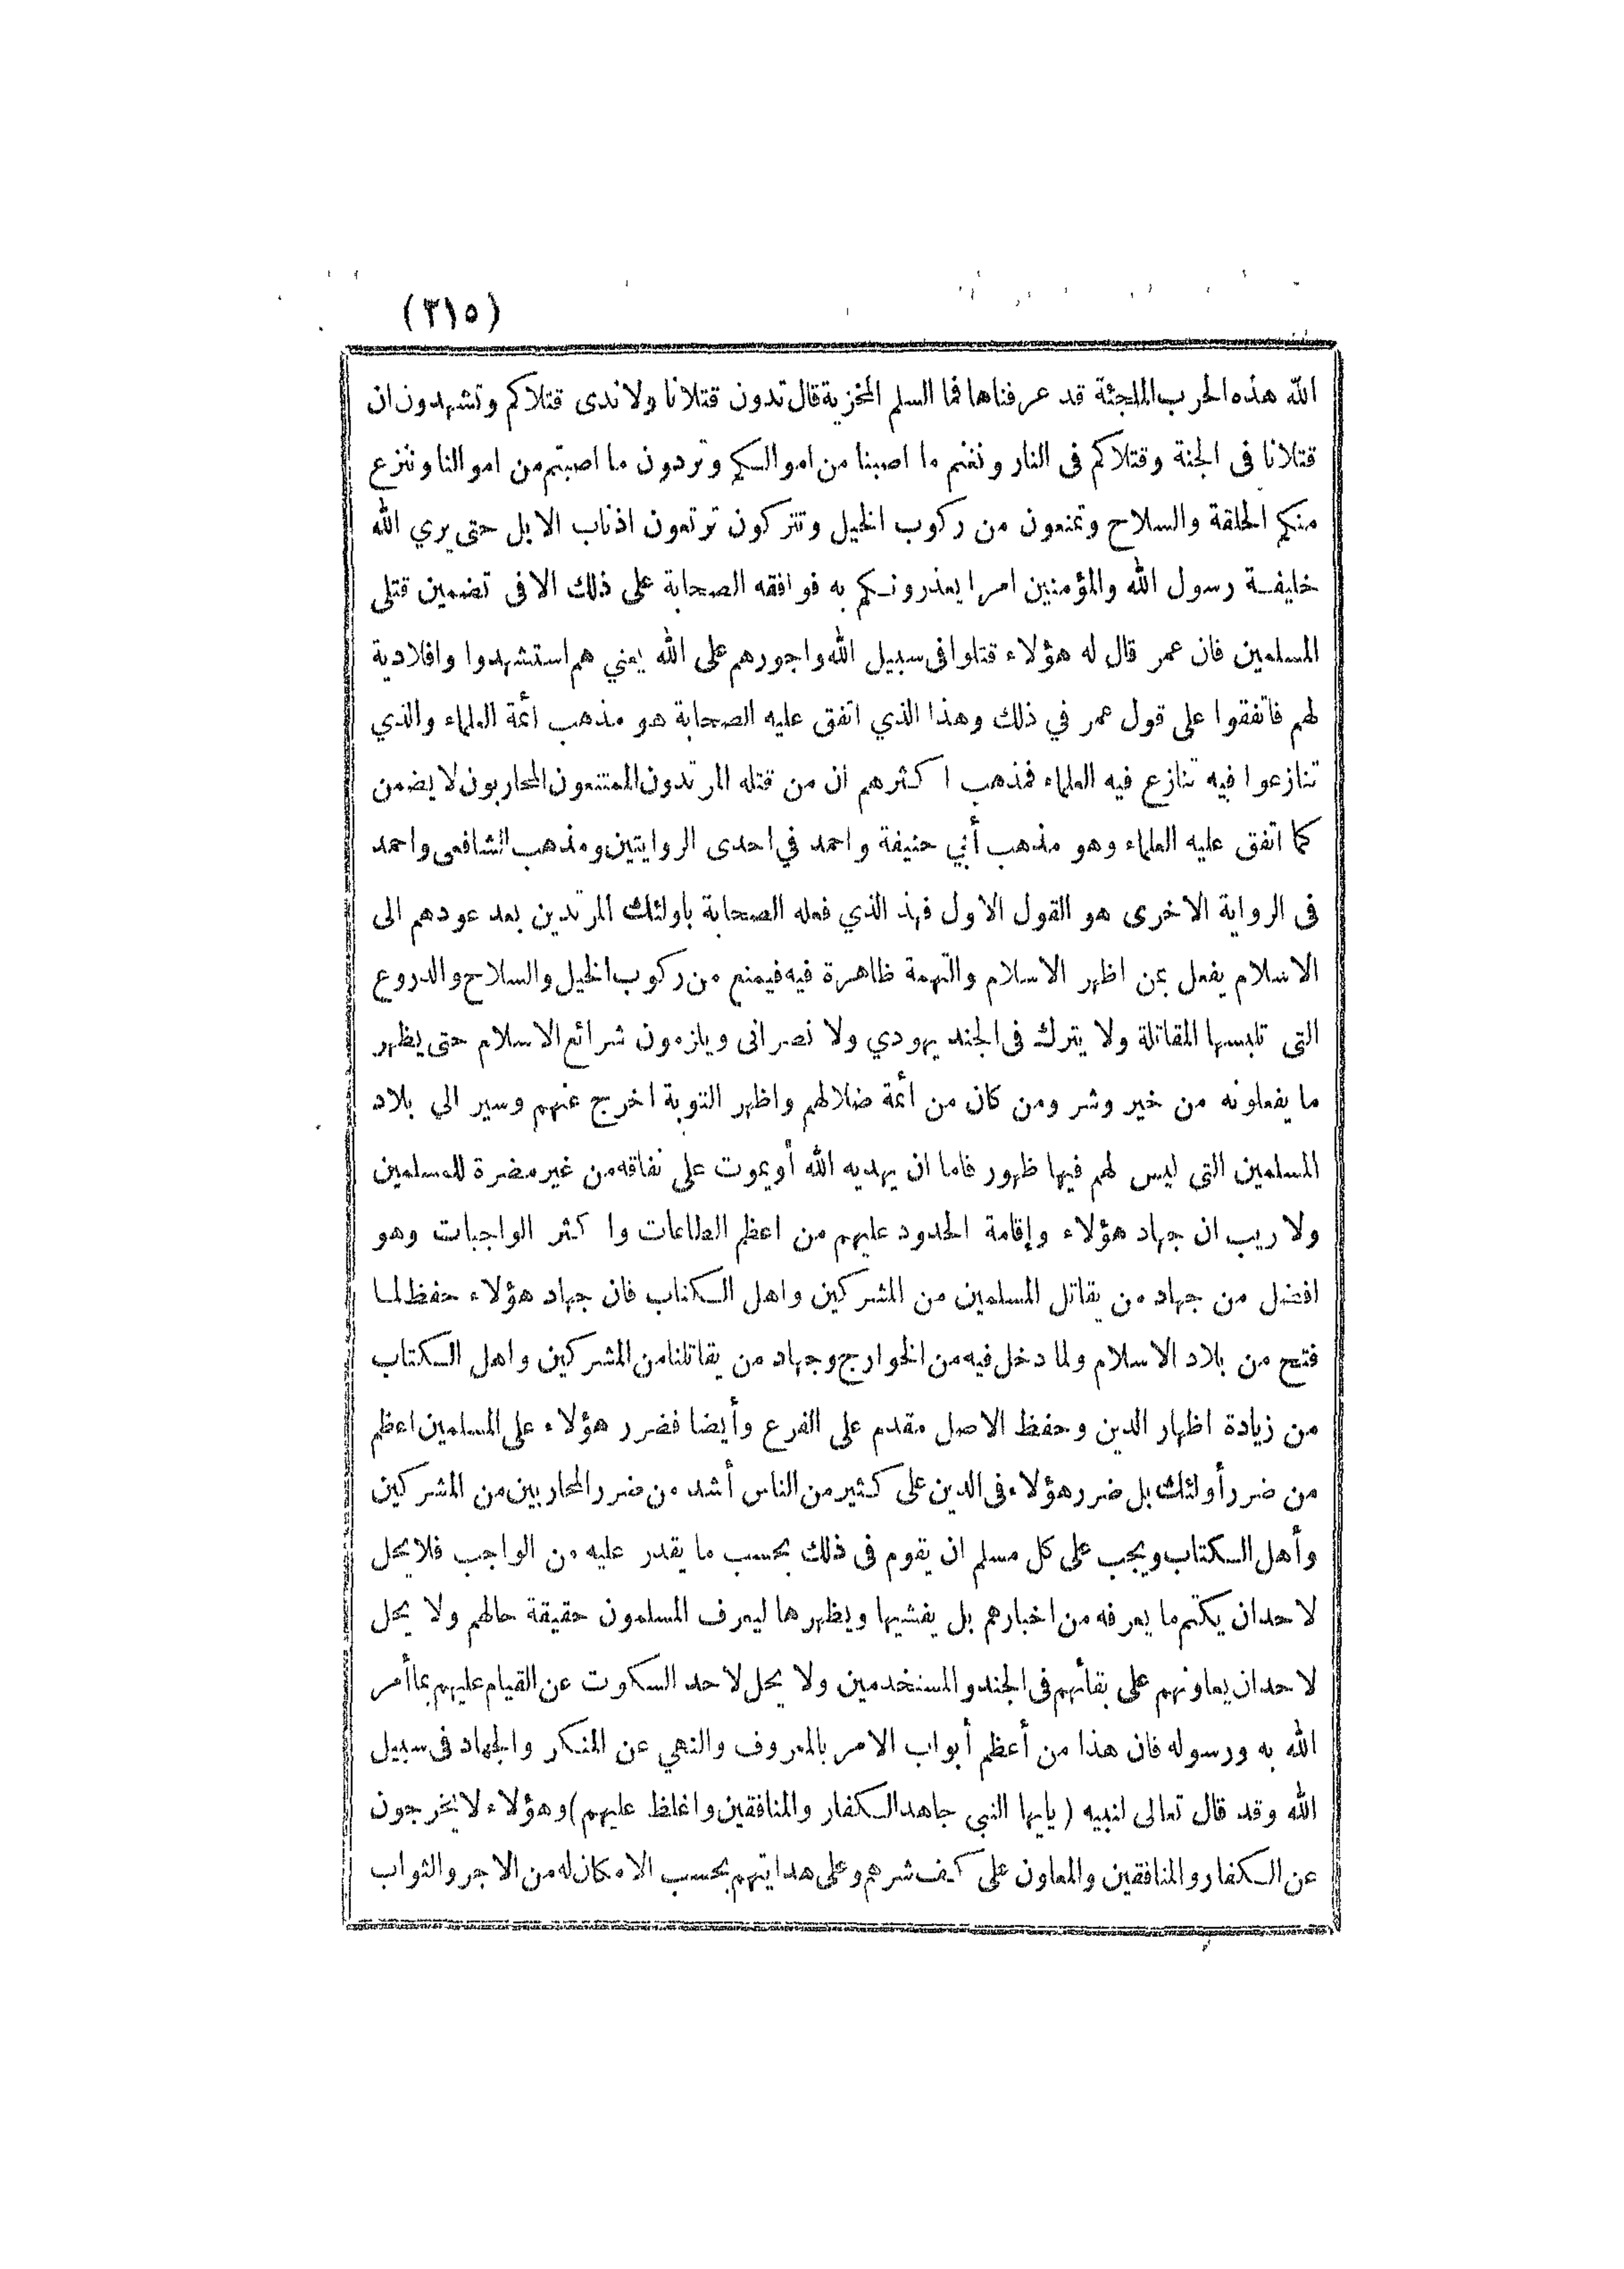 (٣١٥)
الله هذه الحرب الملجئة قد عرفناها فما السلم المخزية قال تدون قتلانا ولا ندى قتلاكم وتشهدون ان
قتلانا فى الجنة وقتلاكم فى النار ونغنم ما اصبنا من اموالكم وتردون ما اصبتم من اموالنا وننزع
منكم الحلقة والسلاح وتمنعون من ركوب الخيل وتتركون ترتعون اذناب الابل حتى يري الله
خليفة رسول الله والمؤمنين امرا يعذرونكم به فوافقه الصحابة على ذلك الا فى تضمين قتلى
المسلمين فان عمر قال له هؤلاء قتلوا فى سبيل الله واجورهم على الله يعني هم استشهدوا وافلادية
لهم فاتفقوا على قول عمر في ذلك وهذا الذي اتفق عليه الصحابة هو مذهب ائمة العلماء والذي
تنازعوا فيه تنازع فيه العلماء فمذهب اكثرهم ان من قتله المرتدون الممتنعون المحاربون لا يضمن
كما اتفق عليه العلماء وهو مذهب أبي حنيفة واحمد في احدى الروايتين ومذهب الشافعى واحمد
فى الرواية الاخرى هو القول الاول فهذ الذي فعله الصحابة باولئك المرتدين بعد عودهم الى
الاسلام يفعل بمن اظهر الاسلام والتهمة ظاهرة فيه فيمنع من ركوب الخيل والسلاح والدروع
التى تلبسها المقاتلة ولا يترك فى الجند يهودي ولا نصرانى ويلزمون شرائع الاسلام حتى يظهر
ما يفعلونه من خير وشر ومن كان من أئمة ضلالهم واظهر التوبة اخرج عنهم وسير الي بلاد
المسلمين التي ليس لهم فيها ظهور فاما ان يهديه الله أو يموت على نفاقه من غير مضرة للمسلمين
ولا ريب ان جهاد هؤلاء وإقامة الحدود عليهم من اعظم الطاعات واكثر الواجبات وهو
افضل من جهاد من يقاتل المسلمين من المشركين واهل الكتاب فان جهاد هؤلاء حفظ لما
فتح من بلاد الاسلام ولما دخل فيه من الخوارج وجهاد من يقاتلنا من المشركين واهل الكتاب
من زيادة اظهار الدين وحفظ الاصل مقدم على الفرع وأيضا فضرر هؤلاء على المسلمين اعظم
من ضرر أولئك بل ضرر هؤلاء فى الدين على كثير من الناس أشد من ضرر المحاربين من المشركين
وأهل الكتاب ويجب على كل مسلم ان يقوم فى ذلك بحسب ما يقدر عليه من الواجب فلا يحل
لاحد ان يكتم ما يعرفه من اخبارهم بل يفشيها ويظهرها ليعرف المسلمون حقيقة حالهم ولا يحل
لاحد ان يعاونهم على بقائهم فى الجند والمستخدمين ولا يحل لاحد السكوت عن القيام عليهم بما أمر
الله به ورسوله فان هذا من أعظم أبواب الامر بالمعروف والنهي عن المنكر والجهاد فى سبيل
الله وقد قال تعالى لنبيه (يايها النبي جاهد الكفار والمنافقين واغلظ عليهم) وهؤلاء لا يخرجون
عن الكفار والمنافقين والمعاون على كف شرهم وعلى هدايتهم بحسب الامكان له من الاجر والثواب